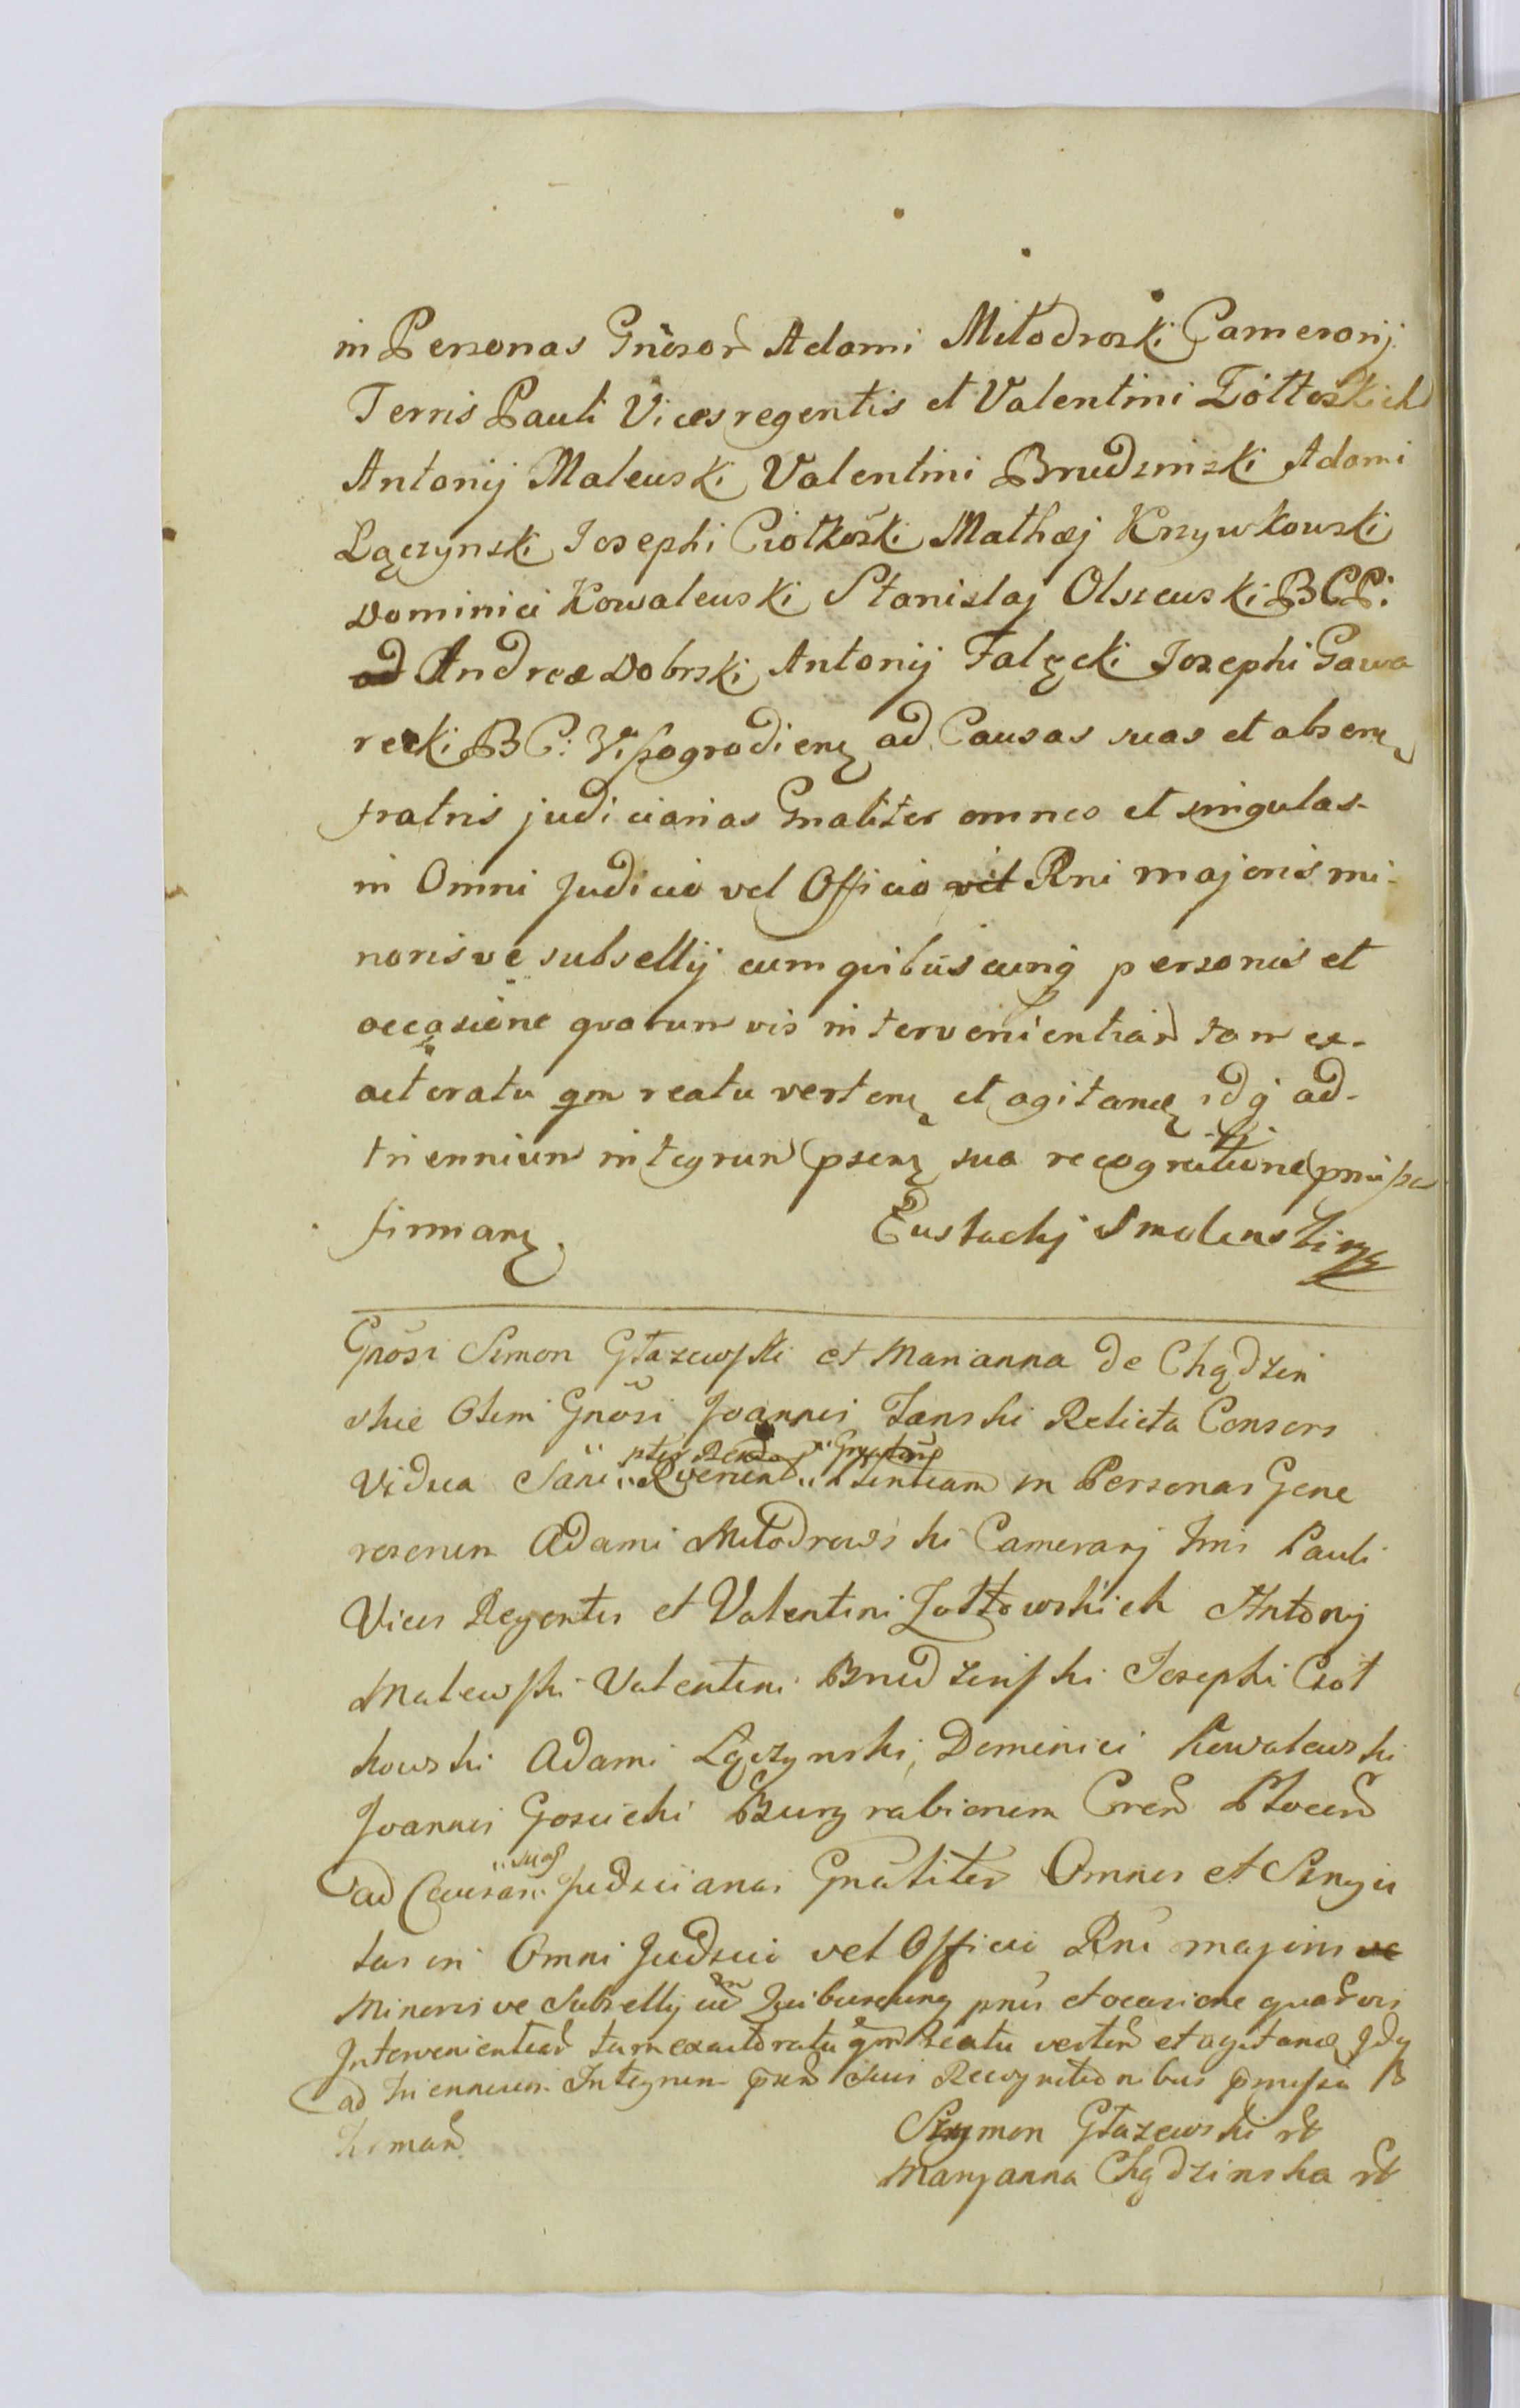 in Personas Gn̄osor Adami Miłodroski Camerarij
Terris Pauli Vicesregentis et Valentini Żółtoskich
Antonij Malewski Valentini Brudzinski Adami
Łączynski Josephi Ciołkoski Mathæj Krzywkowski
Dominici Kowalewski Stanislaj Olszewski BCP:
ad Andreæ Dobrski Antonij Falęcki Josephi Gawa
recki BC: Wißogrodien ad Causas suas et absen
fratris judiciarias Gnaliter omnes et singulas
in Omni Judicio vel Officio vel Rni majoris mi-
norisve subsellij cum quibuscunq personis et
occasione quarumvis intervenientiar tam ex-
actoratu qm reatu verten et agitand idq ad-
triennium integrum psen sua recognitione pmissa
firman. Eustachj Smolenski mp
Gnosi Simon Głazewski et Marianna de Chądzin
skie Olim Gnosi Joannis Janski Relicta Consors
Vidua in Personas Gene
rosorum Adami Miłodrowski Camerarj Tris Pauli
Vices Regentis et Valentini Żółtowskich Antonij
Malewski Valentini Brudzinski Josephi Cioł
kowski Adami Łączynski, Dominici Kowalewski
Joannis Gosicki Burgrabiorum Cren Plocen
ad Causas suas Judiciarias Gnaliter Omnes et Singu
las in Omni Judicio vel Officio Rni majoris ve
Minorisve Subsellij cum Quibuscunq pnis et occasione quarvis
Intervenientiar tam exactoratu qm Reatu verten et agitand Idq
ad triennium Integrum psen suis Recognitionibus pmissa
firman Szymon Głazewski
Maryanna Chądzinska